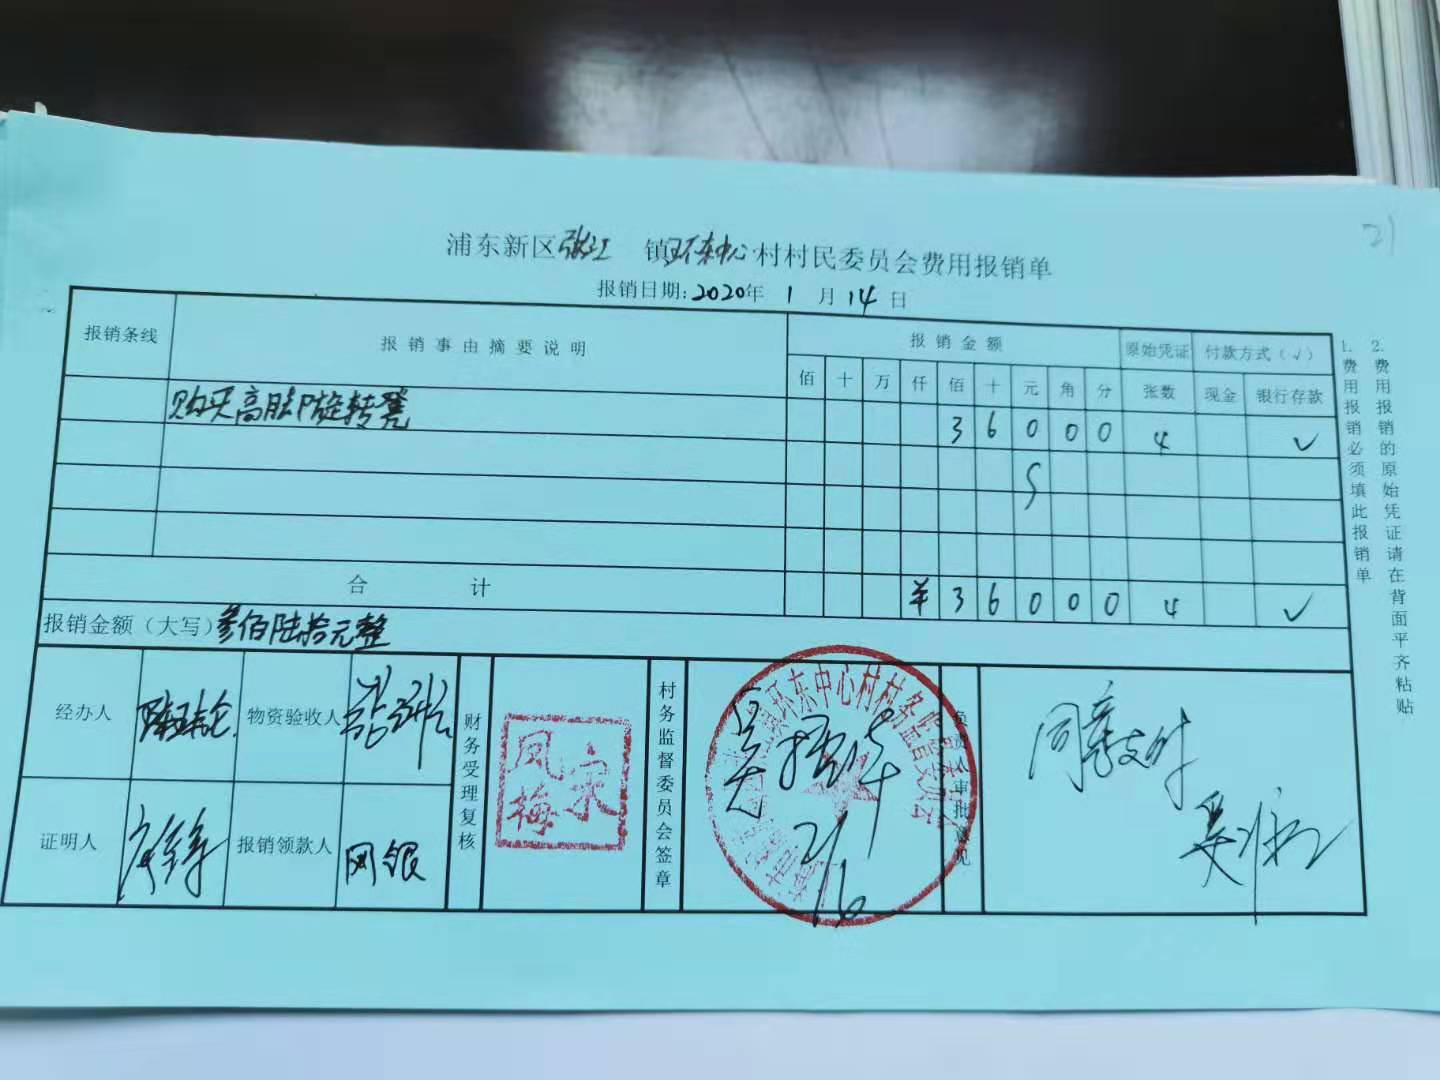 21
浦东新区张江 镇环东中心村村民委员会费用报销单
报销日期:2020年 1 月 14 日
报销条线 报销事由摘要说明 报销金额 原始凭证 付款方式(√)
佰 十 万 仟 佰 十 元 角 分 张数 现金 银行存款
购买高脚旋转凳 3 6 0 0 0 4 √
合 计 ¥ 3 6 0 0 0 4 √
报销金额(大写)叁佰陆拾元整
经办人 物资验收人
证明人 报销领款人 网银
财务受理复核
宋凤梅
村务监督委员会签章
环东中心村村务监督委员会
2/6
负责人审批意见
同意支付
1. 费用报销必须填此报销单
2. 费用报销的原始凭证请在背面平齐粘贴